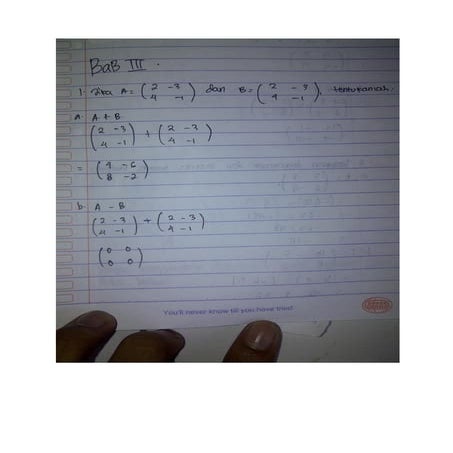 BAB III.
1. Jika A = ( 2 -3 ) dan B = ( 2 -3 ), tentukanlah.
4 -1 4 -1
a. A + B
( 2 -3 ) + ( 2 -3 )
4 -1 4 -1
= ( 4 -6 )
8 -2
b. A - B
( 2 -3 ) + ( 2 -3 )
4 -1 4 -1
( 0 0 )
0 0
You'll never know till you have tried